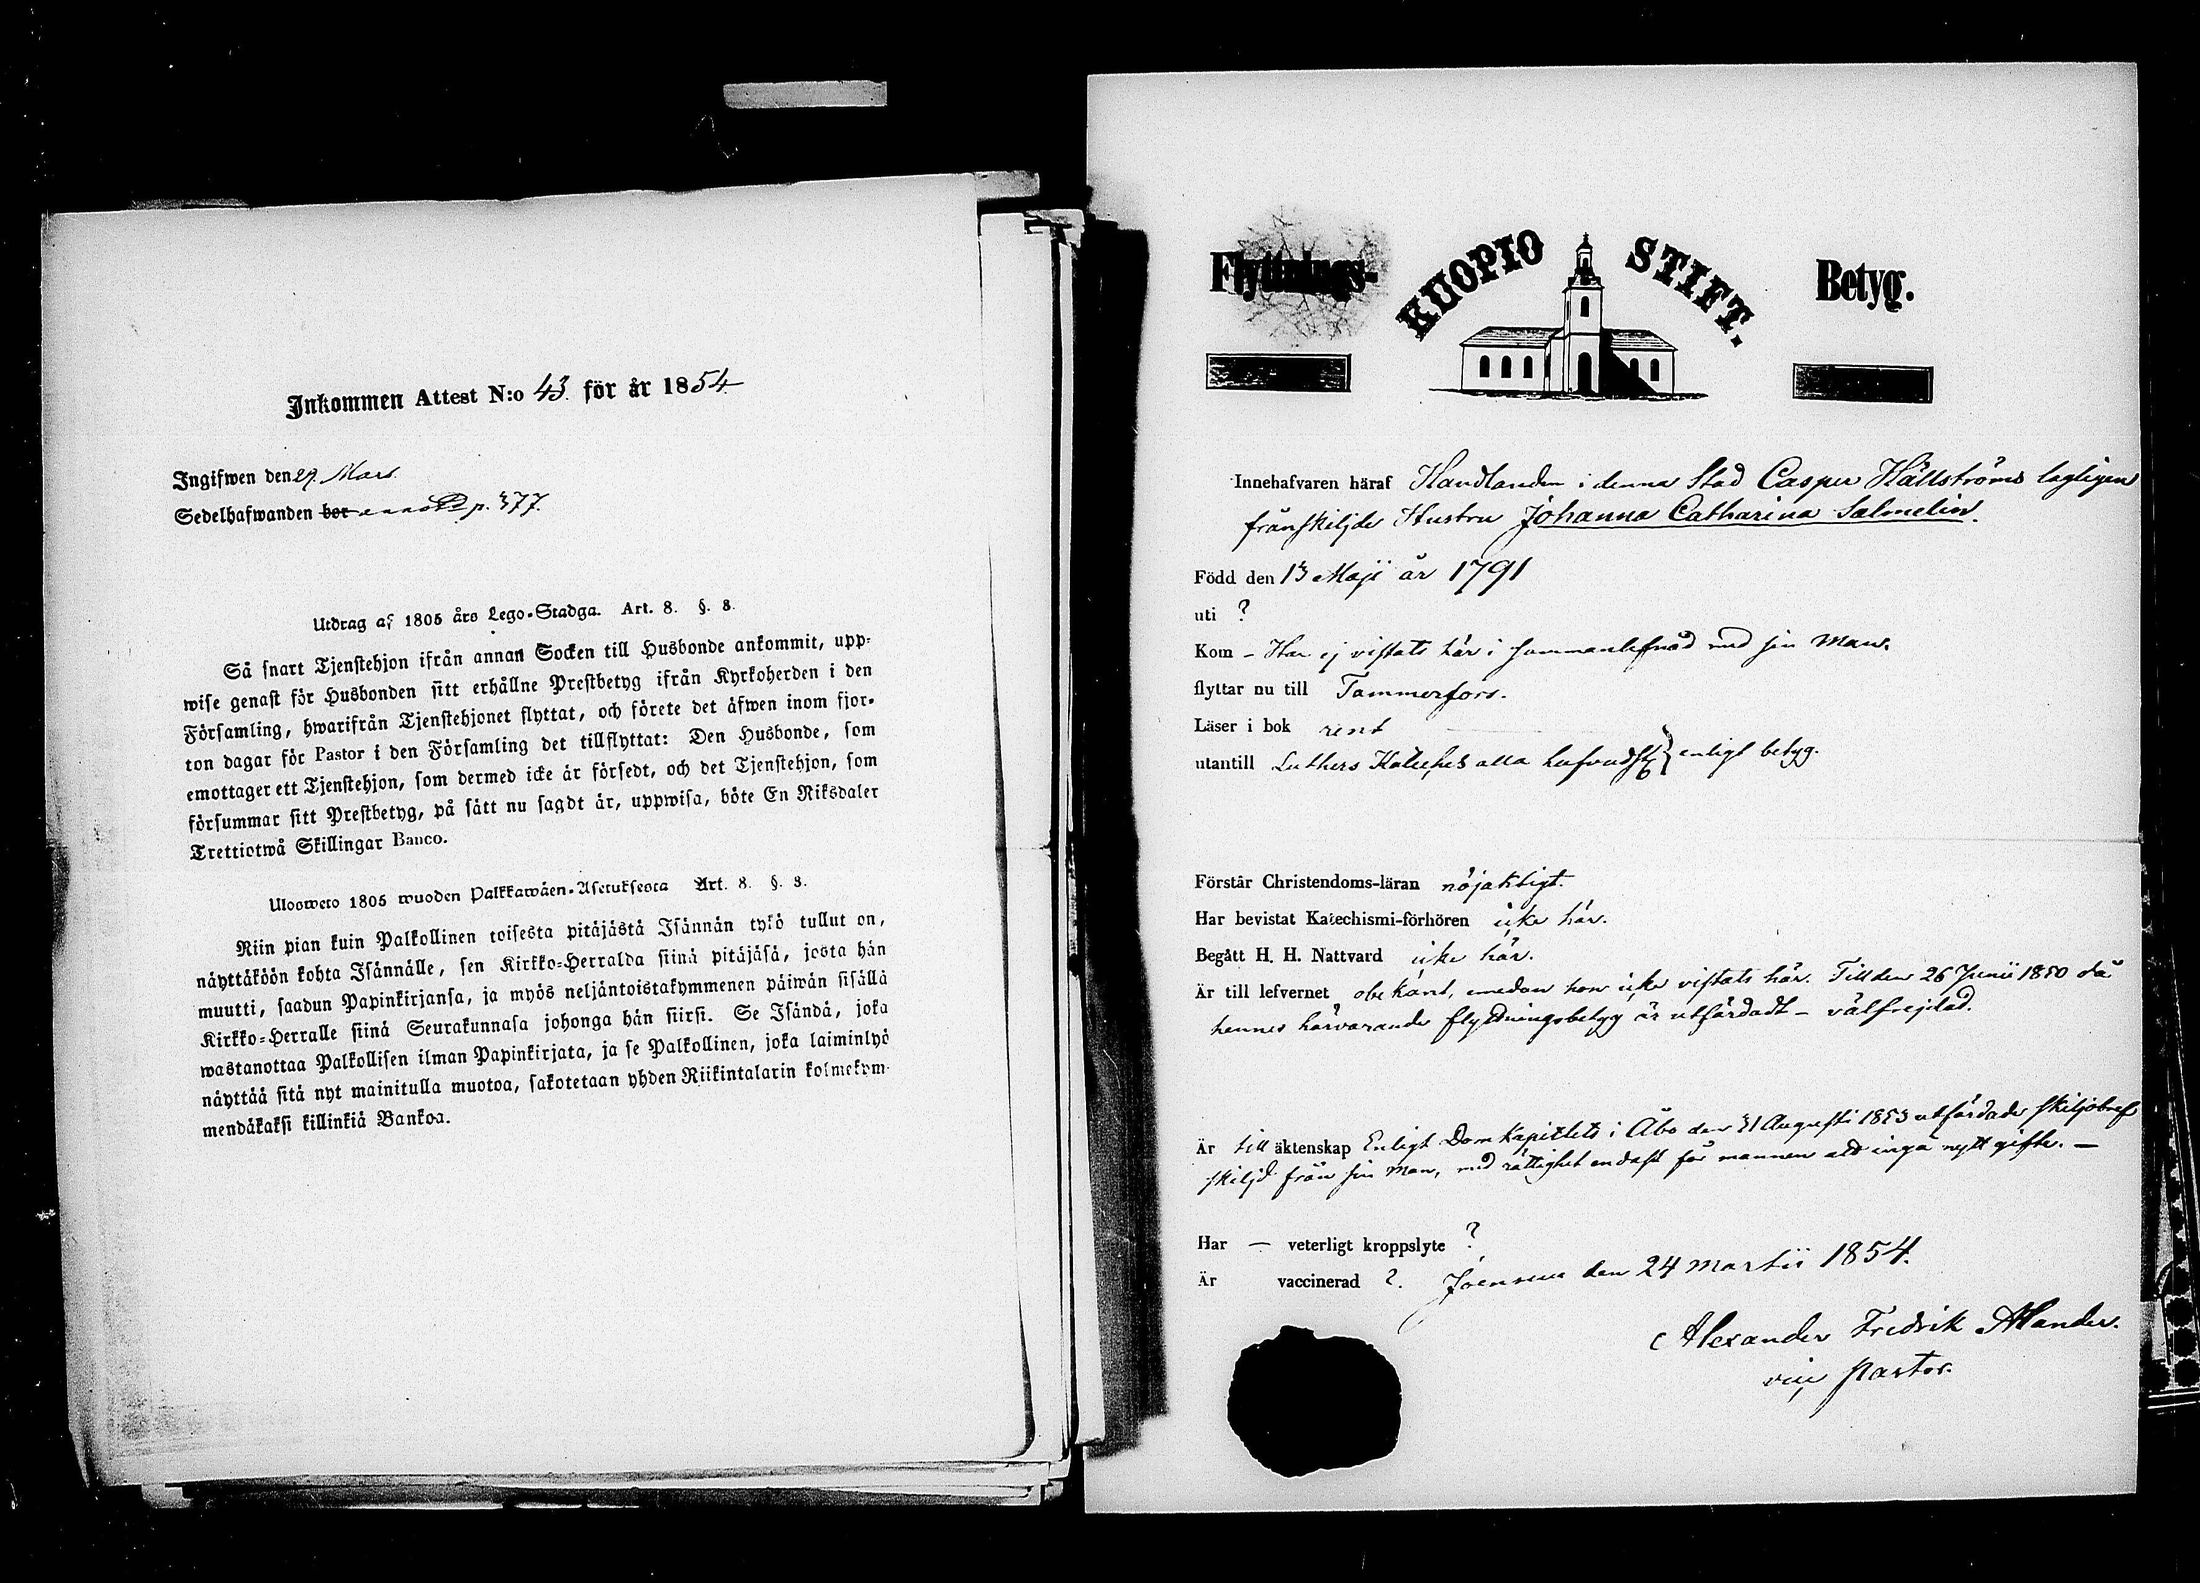 Inkommen Attest N:o 43. för år 1854
Ingifwen den 29. Mars.
Sedelhafwanden bor p. 377.
Utdrag af 1805 års Lego-Stadga. Art. 8. §. 3.
Så snart Tjenstehjon ifrån annan Socken till Husbonde ankommit, upp-
wise genast för Husbonden sitt erhållne Prestbetyg ifrån Kyrkoherden i den
Församling, hwarifrån Tjenstehjonet flyttat, och förete det äfwen inom fjor-
ton dagar för Pastor i den Församling det tillflyttat: Den Husbonde, som
emottager ett Tjenstehjon, som dermed icke är försedt, och det Tjenstehjon, som
försummar sitt Prestbetyg, på sätt nu sagdt är, uppwisa, böte En Riksdaler
Trettiotwå Skillingar Banco.
Ulosweto 1805 wuoden Palkkawäen-Asetuksesta Art. 8. §. 3.
Niin pian kuin Palkollinen toisesta pitäjästä Isännän tykö tullut on,
näyttäköön kohta Isännälle, sen Kirkko-Herralda siinä pitäjäsä, josta hän
muutti, saadun Papinkirjansa, ja myös neljäntoistakymmenen päiwän sisällä
Kirkko-Herralle siinä Seurakunnasa johonga hän siirsi. Se Isändä, joka
wastanottaa Palkollisen ilman Papinkirjata, ja se Palkollinen, joka laiminlyö
näyttää sitä nyt mainitulla muotoa, sakotetaan yhden Riikintalarin kolmekym-
mendäkaksi killinkiä Bankoa.
Flyttnings- KUOPIO STIFT. Betyg.
Innehafvaren häraf Handlanden i denna Stad Casper Hällströms lagligen
frånskiljde Hustru Johanna Catharina Salmelin.
Född den 13 Maji år 1791
uti ?
Kom - Har ej vistats här i sammanlefnad med sin Man.
flyttar nu till Tammerfors.
Läser i bok rent
utantill Luthers Kateches alla hufvudst. } enligt betyg.
Förstår Christendoms-läran nöjaktigt.
Har bevistat Katechismi-förhören icke här.
Begått H. H. Nattvard icke här.
Är till lefvernet obekant, emedan hon icke vistats här. Till den 26 Junii 1850 då
hennes härvarande flyttningsbetyg är utfärdadt - välfrejdad.
Är till äktenskap Enligt Dom Kapitlets i Åbo den 31 Augusti 1853 utfärdade skiljobref
skiljd från sin Man, med rättighet endast för mannen att ingå nytt gifte. -
Har - veterligt kroppslyte ?
Är vaccinerad ?. Joensuu den 24 Martii 1854.
Alexander Fredrik Alander.
vice Pastor.